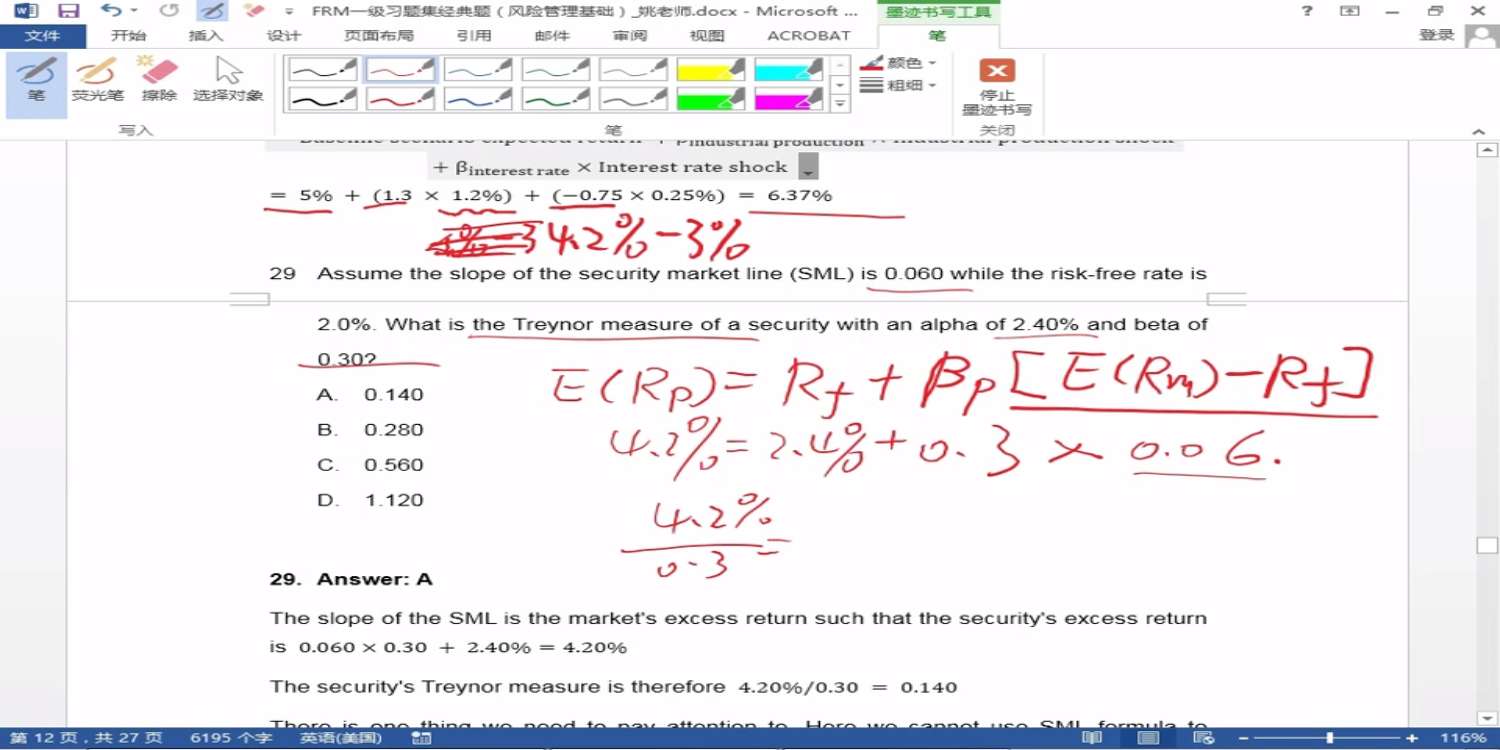 FRM一级习题集经典题（风险管理基础）_姚老师.docx - Microsoft ...
墨迹书写工具
?
文件 开始 插入 设计 页面布局 引用 邮件 审阅 视图 ACROBAT 笔 登录
笔 荧光笔 擦除 选择对象
颜色
粗细
停止
墨迹书写
写入 笔 关闭
Baseline scenario expected return + βindustrial production × Industrial production shock
+ βinterest rate × Interest rate shock
= 5% + (1.3 × 1.2%) + (−0.75 × 0.25%) = 6.37%
4.2%-3%
29 Assume the slope of the security market line (SML) is 0.060 while the risk-free rate is
2.0%. What is the Treynor measure of a security with an alpha of 2.40% and beta of
0.30?
E(Rp) = Rf + βp [E(Rm) - Rf]
A. 0.140
B. 0.280
4.2% = 2.4% + 0.3 × 0.06.
C. 0.560
D. 1.120
4.2%
0.3 =
29. Answer: A
The slope of the SML is the market's excess return such that the security's excess return
is 0.060 × 0.30 + 2.40% = 4.20%
The security's Treynor measure is therefore 4.20%/0.30 = 0.140
There is one thing we need to pay attention to. Here we cannot use SML formula to
第 12 页，共 27 页 6195 个字 英语(美国) 116%